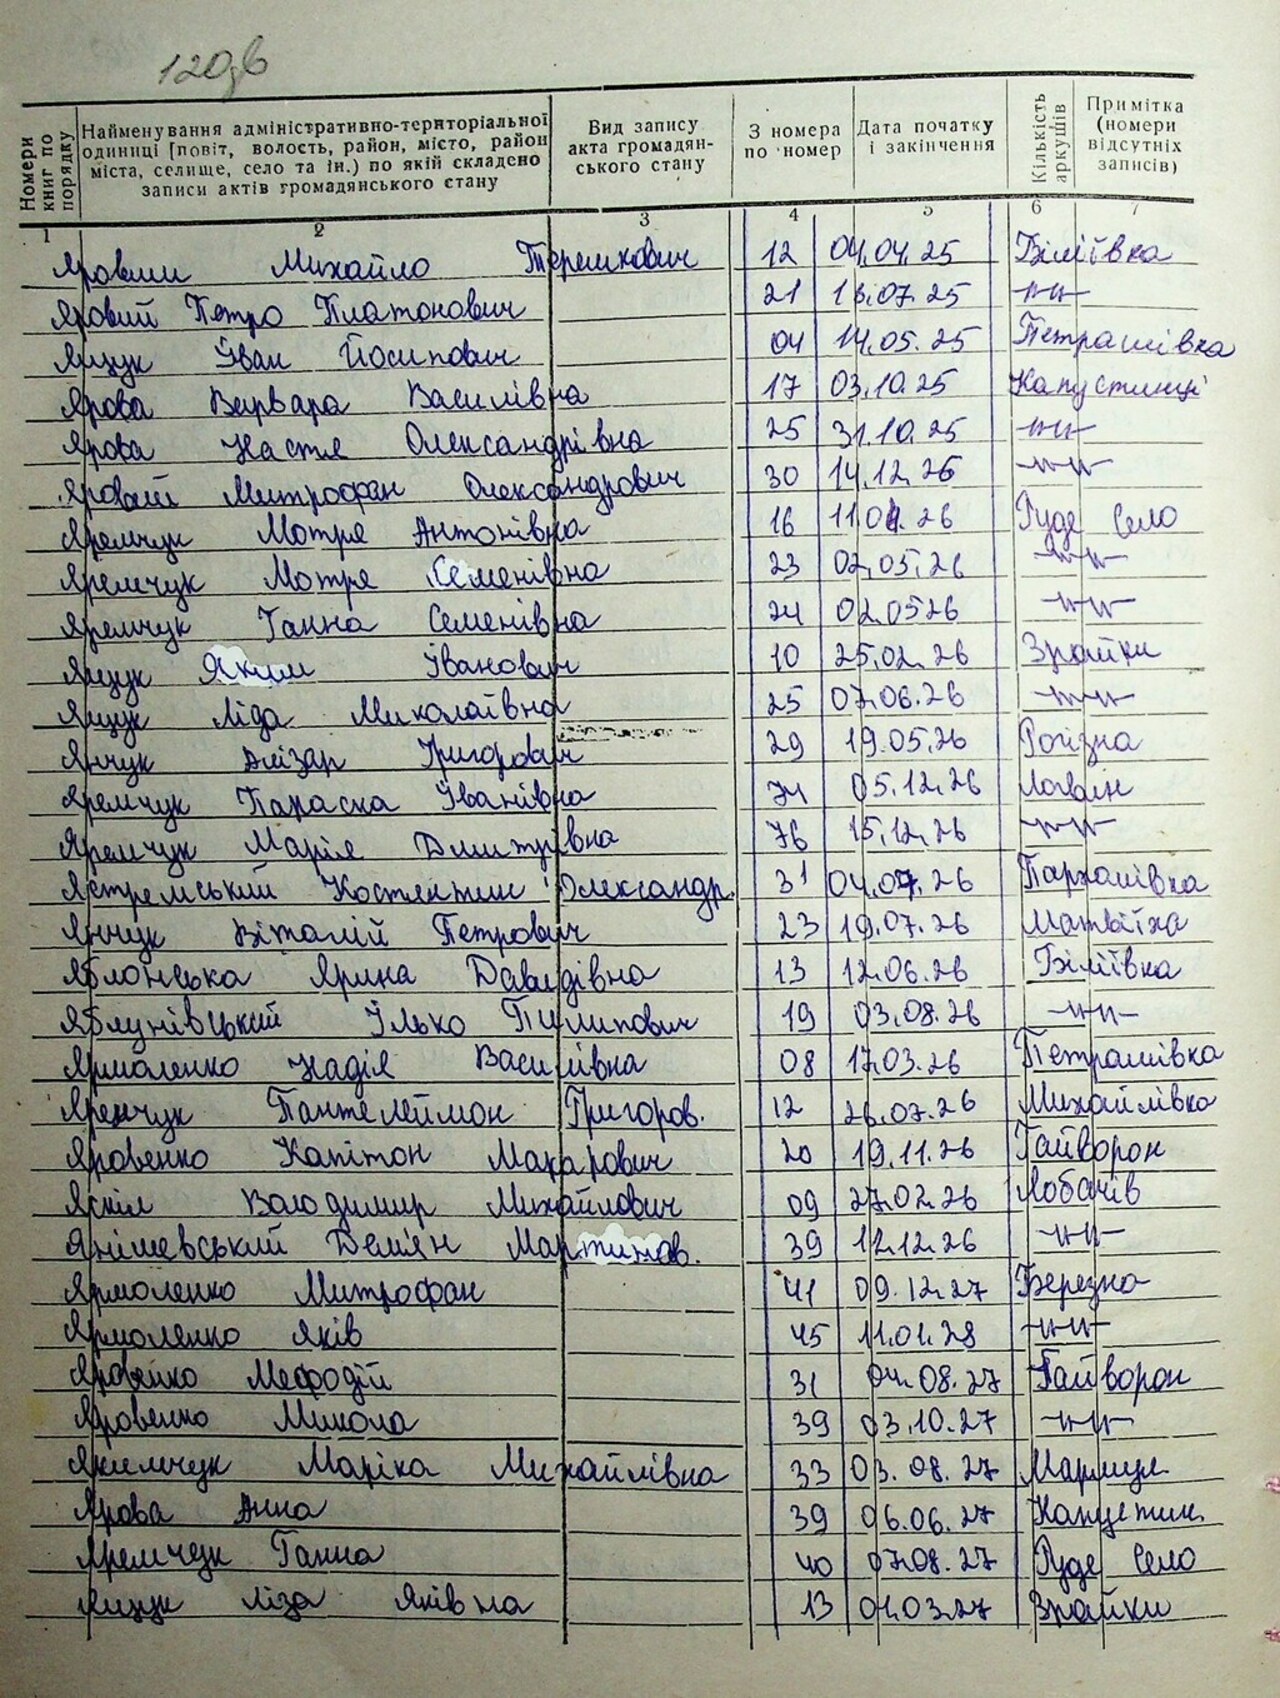 120зв
Номери книг по порядку
Найменування адміністративно-територіальної одиниці [повіт, волость, район, місто, район міста, селище, село та ін.) по якій складено записи актів громадянського стану
Вид запису акта громадян-ського стану
З номера по номер
Дата початку і закінчення
Кількість аркушів
Примітка (номери відсутніх записів)
1 2 3 4 5 6 7
Яровий Михайло Терешкович 12 04.04.25 Біліївка
Яровий Петро Платонович 21 13.07.25 -"-"-
Ящук Іван Йосипович 04 14.05.25 Петрашівка
Ярова Варвара Василівна 17 03.10.25 Капустинці
Ярова Настя Олександрівна 25 31.10.25 -"-"-
Яровий Митрофан Олександрович 30 14.12.26 -"-"-
Яремчук Мотря Антонівна 16 11.04.26 Руде Село
Яремчук Мотря Семенівна 23 02.05.26 -"-"-
Яремчук Ганна Семенівна 24 02.05 26 -"-"-
Ящук Яким Іванович 10 25.02.26 Зрайки
Ящук Ліда Миколаївна 25 07.06.26 -"-"-
Янчук Елізар Григорович 29 19.05.26 Рогізна
Яремчук Параска Іванівна 74 05.12.26 Логвин
Яремчук Марія Дмитрівна 76 15.12.26 -"-"-
Ястремський Костянтин Олександр. 31 04.07.26 Пархомівка
Янчук Віталій Петрович 23 19.07.26 Матвіїха
Яблонська Ярина Давидівна 13 12.06.26 Біліївка
Яблунівський Ілько Пилипович 19 03.08.26 -"-"-
Ярмоленко Надія Василівна 08 17.03.26 Петрашівка
Яремчук Пантелеймон Григоров. 12 26.07.26 Михайлівка
Яровенко Капітон Макарович 20 19.11.26 Гайворон
Яскіл Володимир Михайлович 09 27.02.26 Лобачів
Янішевський Дем'ян Мартинов. 39 12.12.26 -"-"-
Ярмоленко Митрофан 41 09.12.27 Березна
Ярмоленко Яків 45 11.01.28 -"-"-
Яровенко Мефодій 31 04.08.27 Гайворон
Яровенко Микола 39 03.10.27 -"-"-
Якимчук Маріка Михайлівна 33 03.08.27 Мармул.
Ярова Анна 39 06.06.27 Капустин.
Яремчук Ганна 40 07.08.27 Руде Село
Ящук Ліза Яківна 13 01.03.27 Зрайки